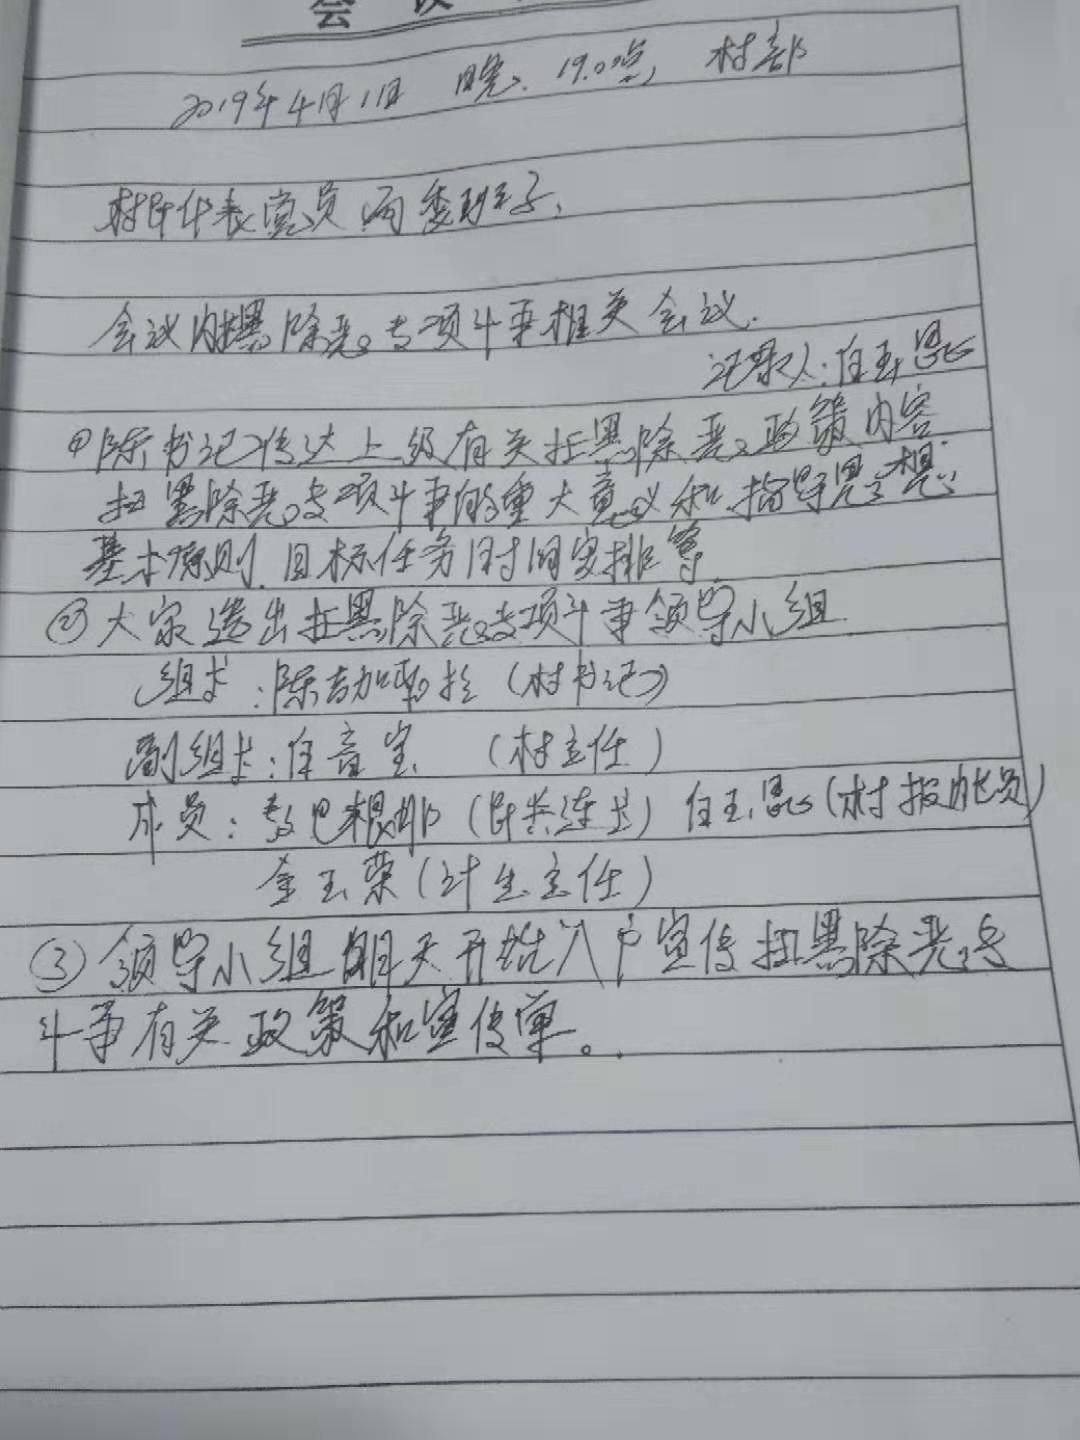 会 议
2019年4月1日 晚、19.00点, 村部
村民代表党员两委班子、
会议内扫黑除恶专项斗争相关会议.
记录人:白玉
①陈书记传达上级有关扫黑除恶政策内容.
扫黑除恶专项斗争的重大意义和指导思想
基本原则.目标任务时间安排等.
②大家选出扫黑除恶专项斗争领导小组.
组长:陈(村书记)
副组长:白音宝 (村主任)
成员:根那(民兵连长) 白玉(村报账员)
金玉荣(计生主任)
③领导小组明天开始入户宣传扫黑除恶专
斗争有关政策和宣传单。